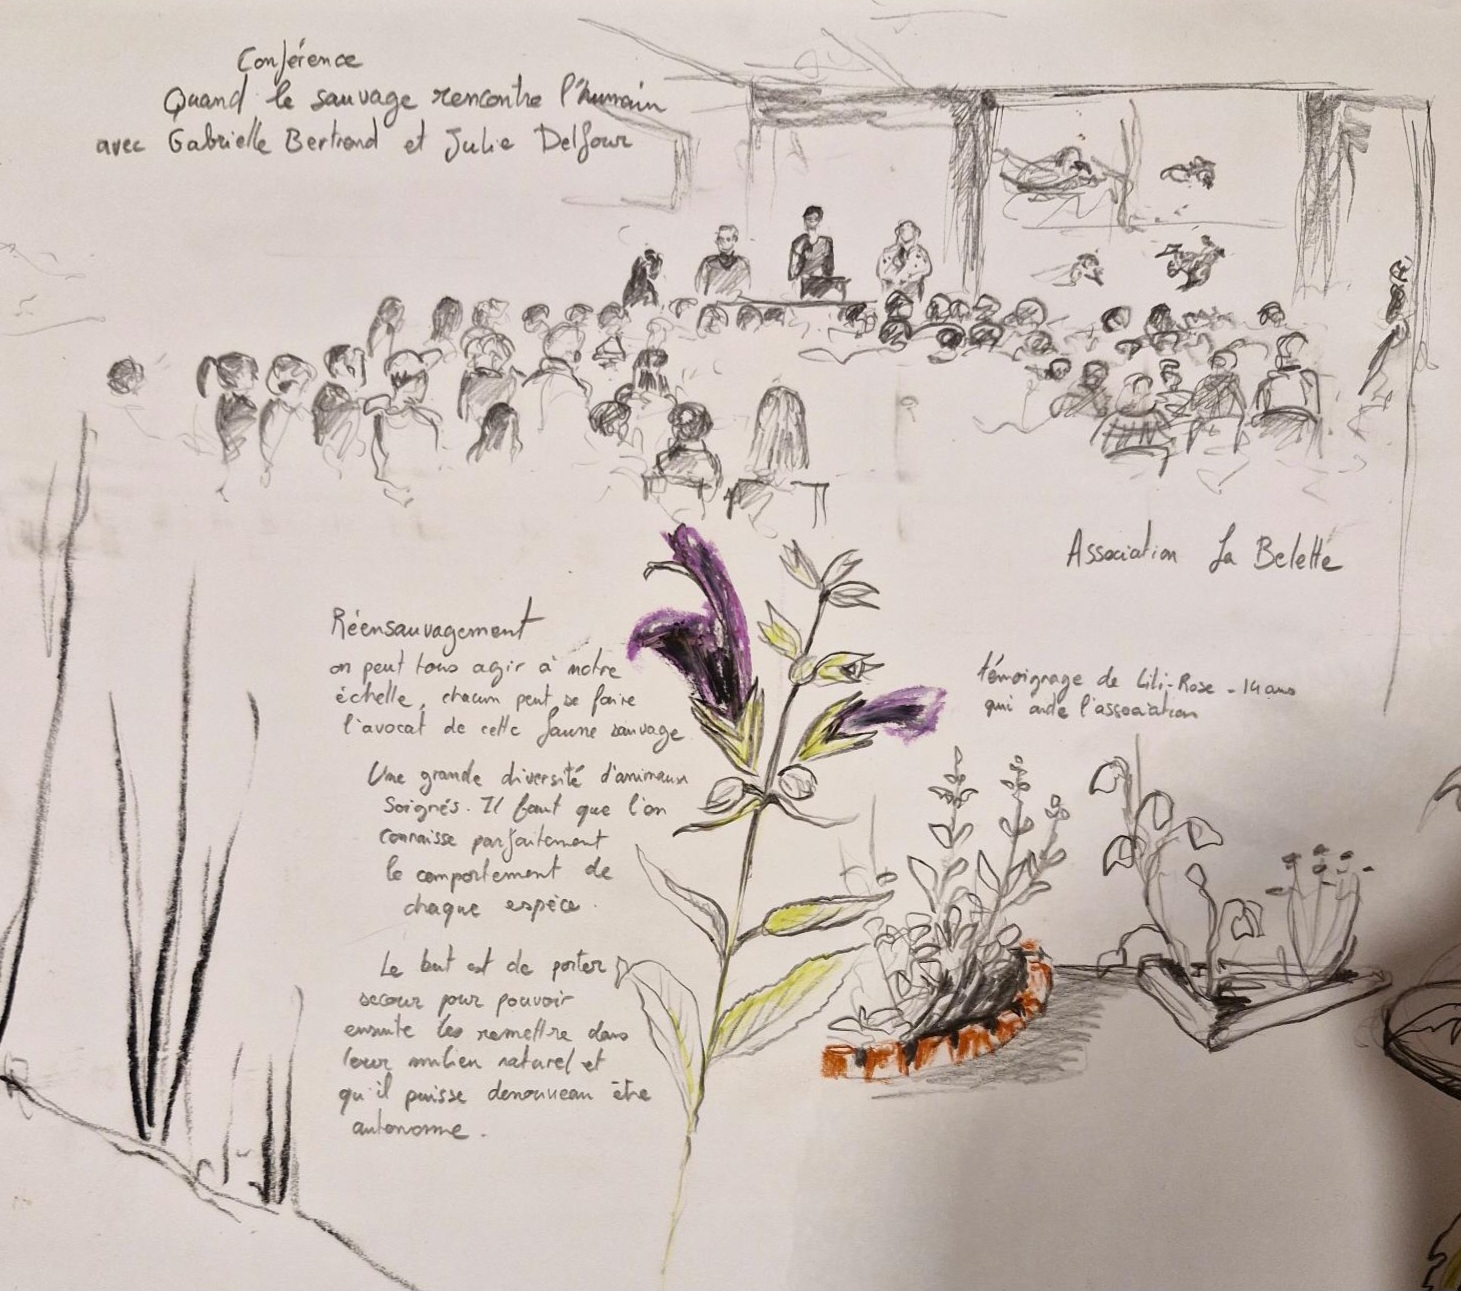 Conférence
Quand le sauvage rencontre l'humain
avec Gabrielle Bertrand et Julie Delfour
Association La Belette
Réensauvagement
on peut tous agir à notre
échelle, chacun peut se faire
l'avocat de cette faune sauvage
Une grande diversité d'animaux
soignés. Il faut que l'on
connaisse parfaitement
le comportement de
chaque espèce.
Le but est de porter
secour pour pouvoir
ensuite les remettre dans
leur milieu naturel et
qu'il puisse denouveau être
autonome.
témoignage de Lili-Rose - 14 ans
qui aide l'association